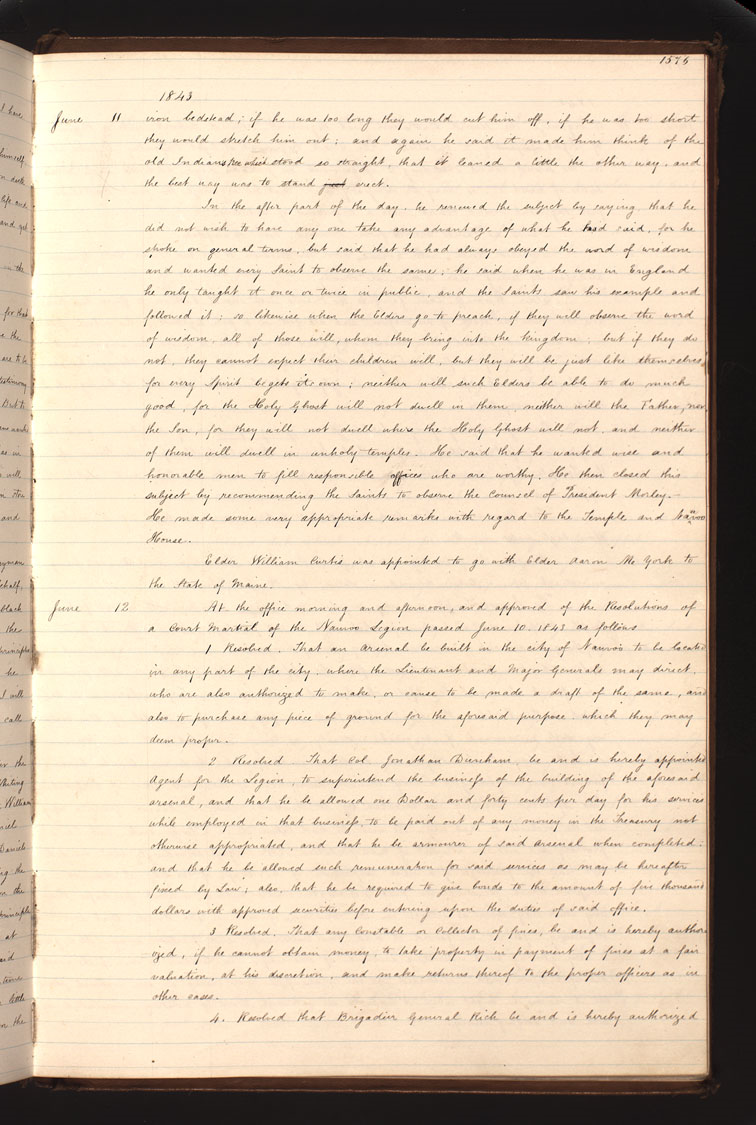 1575
1843
June 11 iron bedstead; if he was too long they would cut him off, if he was too short
they would stretch him out; and again he said it made him think of the
old Indians tree which stood so straight, that it leaned a little the other way, and
the best way was to stand just erect.
In the after part of the day, he renewed the subject by saying, that he
did not wish to have any one take any advantage of what he had said, for he
spoke on general terms, but said that he had always obeyed the word of wisdom
and wanted every Saint to observe the same; he said when he was in England
he only taught it once or twice in public, and the Saints saw his example and
followed it; so likewise when the Elders go to preach, if they will observe the word
of wisdom, all of those will, whom they bring into the kingdom; but if they do
not, they cannot expect their children will, but they will be just like themselves,
for every Spirit begets its own; neither will such Elders be able to do much
good, for the Holy Ghost will not dwell in them, neither will the Father, nor
the Son, for they will not dwell where the Holy Ghost will not, and neither
of them will dwell in unholy temples. He said that he wanted wise and
honorable men to fill responsible offices who are worthy. He then closed this
subject by recommending the Saints to observe the Council of President Morley.—
He made some very appropriate remarks with regard to the Temple and Nauvoo
House.
Elder William Curtis was appointed to go with Elder Aaron M. York to
the State of Maine.
June 12 At the office morning and afternoon, and approved of the Resolutions of
a Court Martial of the Nauvoo Legion passed June 10. 1843 as follows
1 Resolved, That an arsenal be built in the city of Nauvoo to be located
in any part of the city, where the Lieutenant and Major Generals may direct,
who are also authorized to make, or cause to be made a draft of the same, and
also to purchase any piece of ground for the aforesaid purpose which they may
deem proper.
2 Resolved That Col. Jonathan Dunham, be and is hereby appointed
Agent for the Legion, to superintend the business of the building of the aforesaid
arsenal, and that he be allowed one Dollar and forty cents per day for his services
while employed in that business, to be paid out of any money in the Treasury not
otherwise appropriated, and that he be armourer of said Arsenal when completed;
and that he be allowed such remuneration for said services as may be hereafter
fixed by Law; also, that he be required to give bonds to the amount of five thousand
dollars with approved securities before entering upon the duties of said office.
3 Resolved. That any Constable or Collector of fines, be and is hereby author-
ized, if he cannot obtain money, to take property in payment of fines at a fair
valuation, at his discretion, and make returns thereof to the proper officers as in
other cases.
4. Resolved that Brigadier General Rich be and is hereby authorized